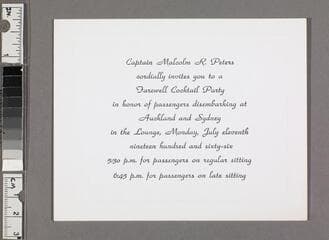 Captain Malcolm K. Peters
cordially invites you to a
Farewell Cocktail Party
in honor of passengers disembarking at
Auckland and Sydney
in the Lounge, Monday, July eleventh
nineteen hundred and sixty-six
5:30 p.m. for passengers on regular sitting
6:45 p.m. for passengers on late sitting
cm 1
2
3